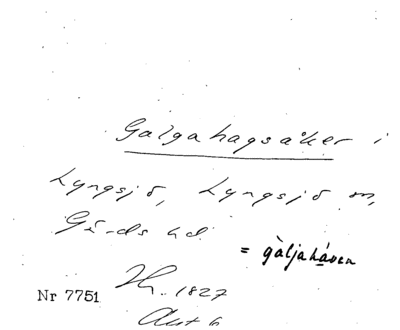 Galgahagsåker i
Lyngsjö, Lyngsjö sn,
Gärds hd
= gàljahávεn
Nr 7751 Hr. 1827
Akt 6